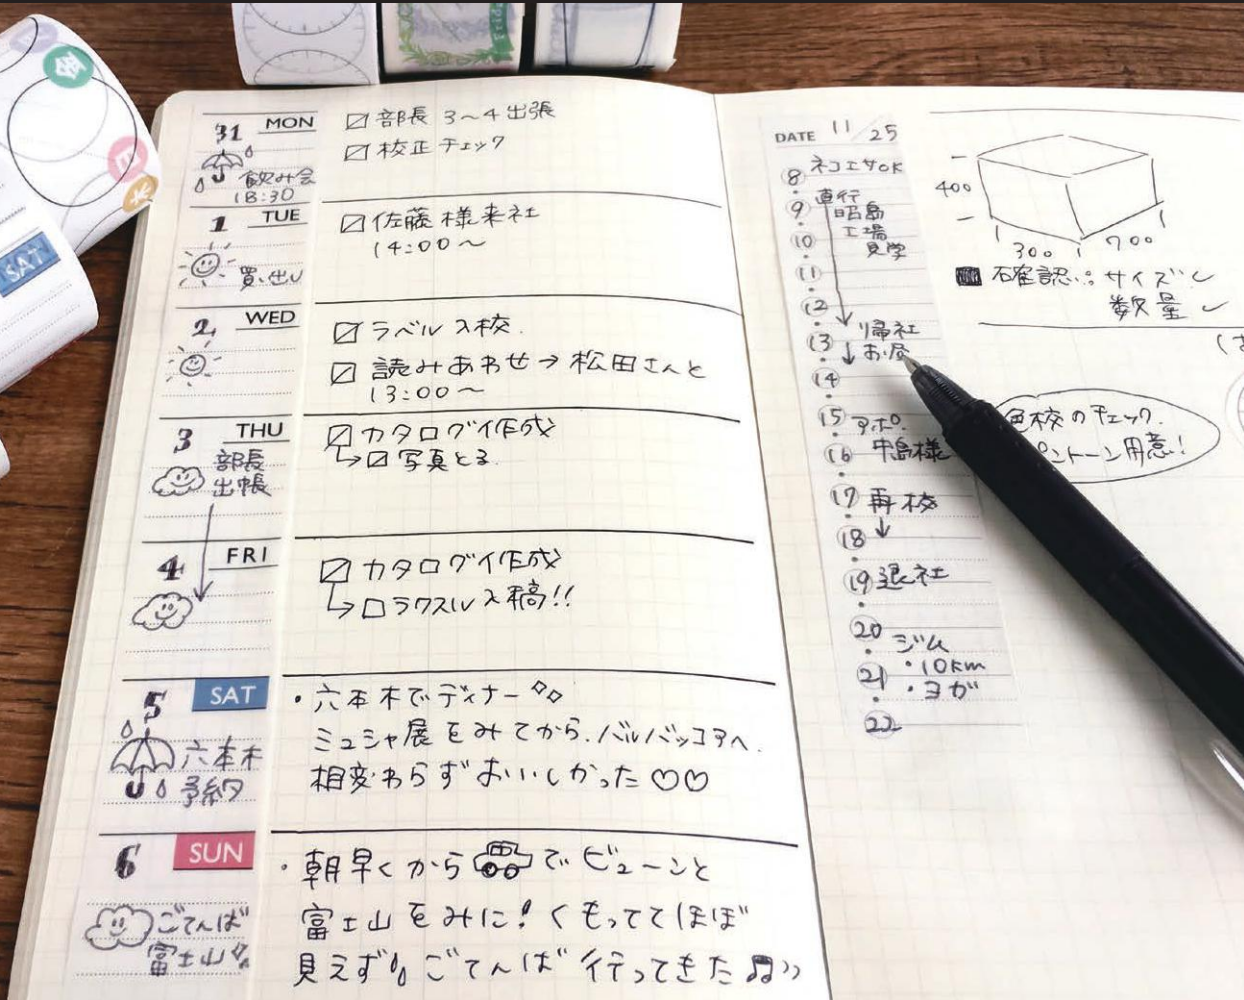 Frid
SAT
31 MON
飲み会
18:30
部長 3〜4出張
校正チェック
1 TUE
買い出し
佐藤様来社
14:00〜
2 WED
ラベル入校.
読みあわせ→松田さんと
13:00〜
3 THU
部長
出帳
カタログイ作成
↳写真とる.
4 FRI
カタログイ作成
↳ラクスル入稿!!
5 SAT
六本木
予約
・六本木でディナー
ミュシャ展をみてから、バルバッコアへ.
相変わらずおいしかった♡♡
6 SUN
ごてんば
富士山
・朝早くからでビューンと
富士山をみに!くもっててほぼ
見えずごてんば行ってきた♫
DATE 11/25
8 ネコエサOK
直行
9 昭島
工場
10 見学
11
12
13 帰社
お昼
14
15 アポ.
16 中島様
17 再校
18
19 退社
20 ジム
21 ・10km
・ヨガ
22
400
300
700
確認:サイズ✓
数量✓
色校のチェック.
ントーン用意!